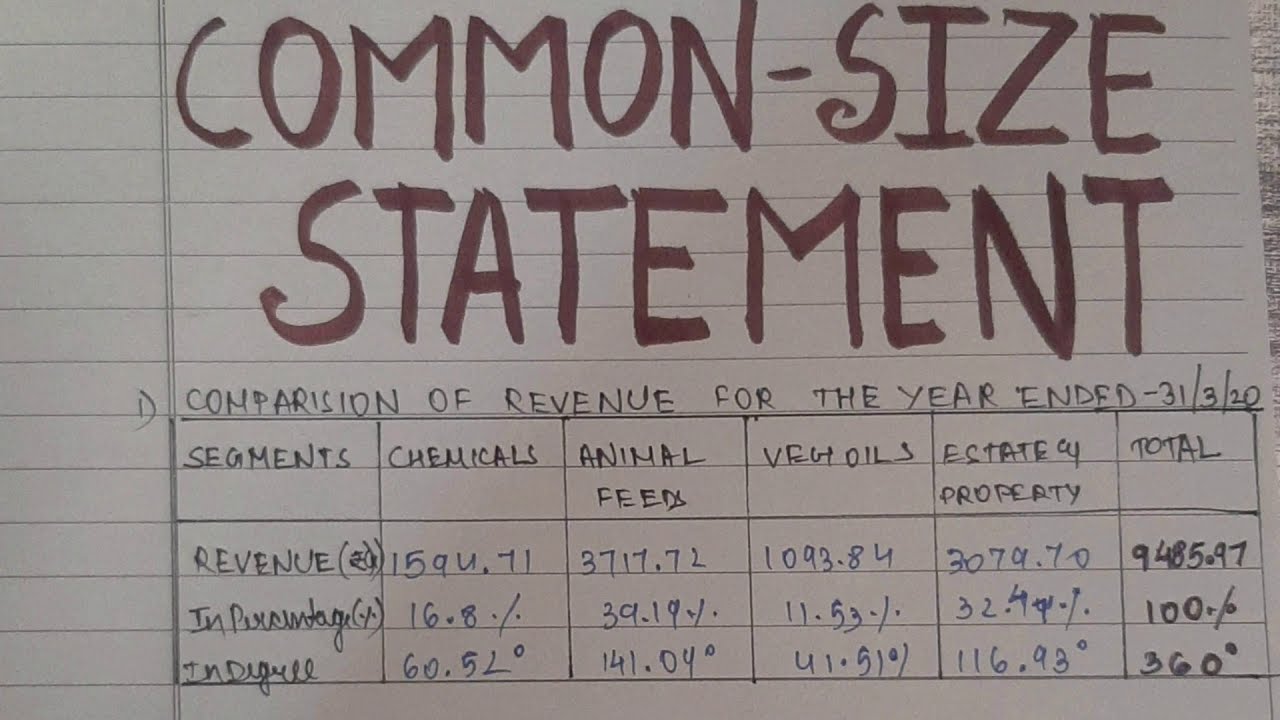 COMMON-SIZE
STATEMENT
1) COMPARISION OF REVENUE FOR THE YEAR ENDED-31/3/20
SEGMENTS CHEMICALS ANIMAL FEEDS VEG OILS ESTATE & PROPERTY TOTAL
REVENUE 1594.71 3717.72 1093.84 3079.70 9485.97
In Percentage(%) 16.8% 39.19% 11.53% 100%
InDegree 60.52° 141.04° 41.51% 116.93° 360°